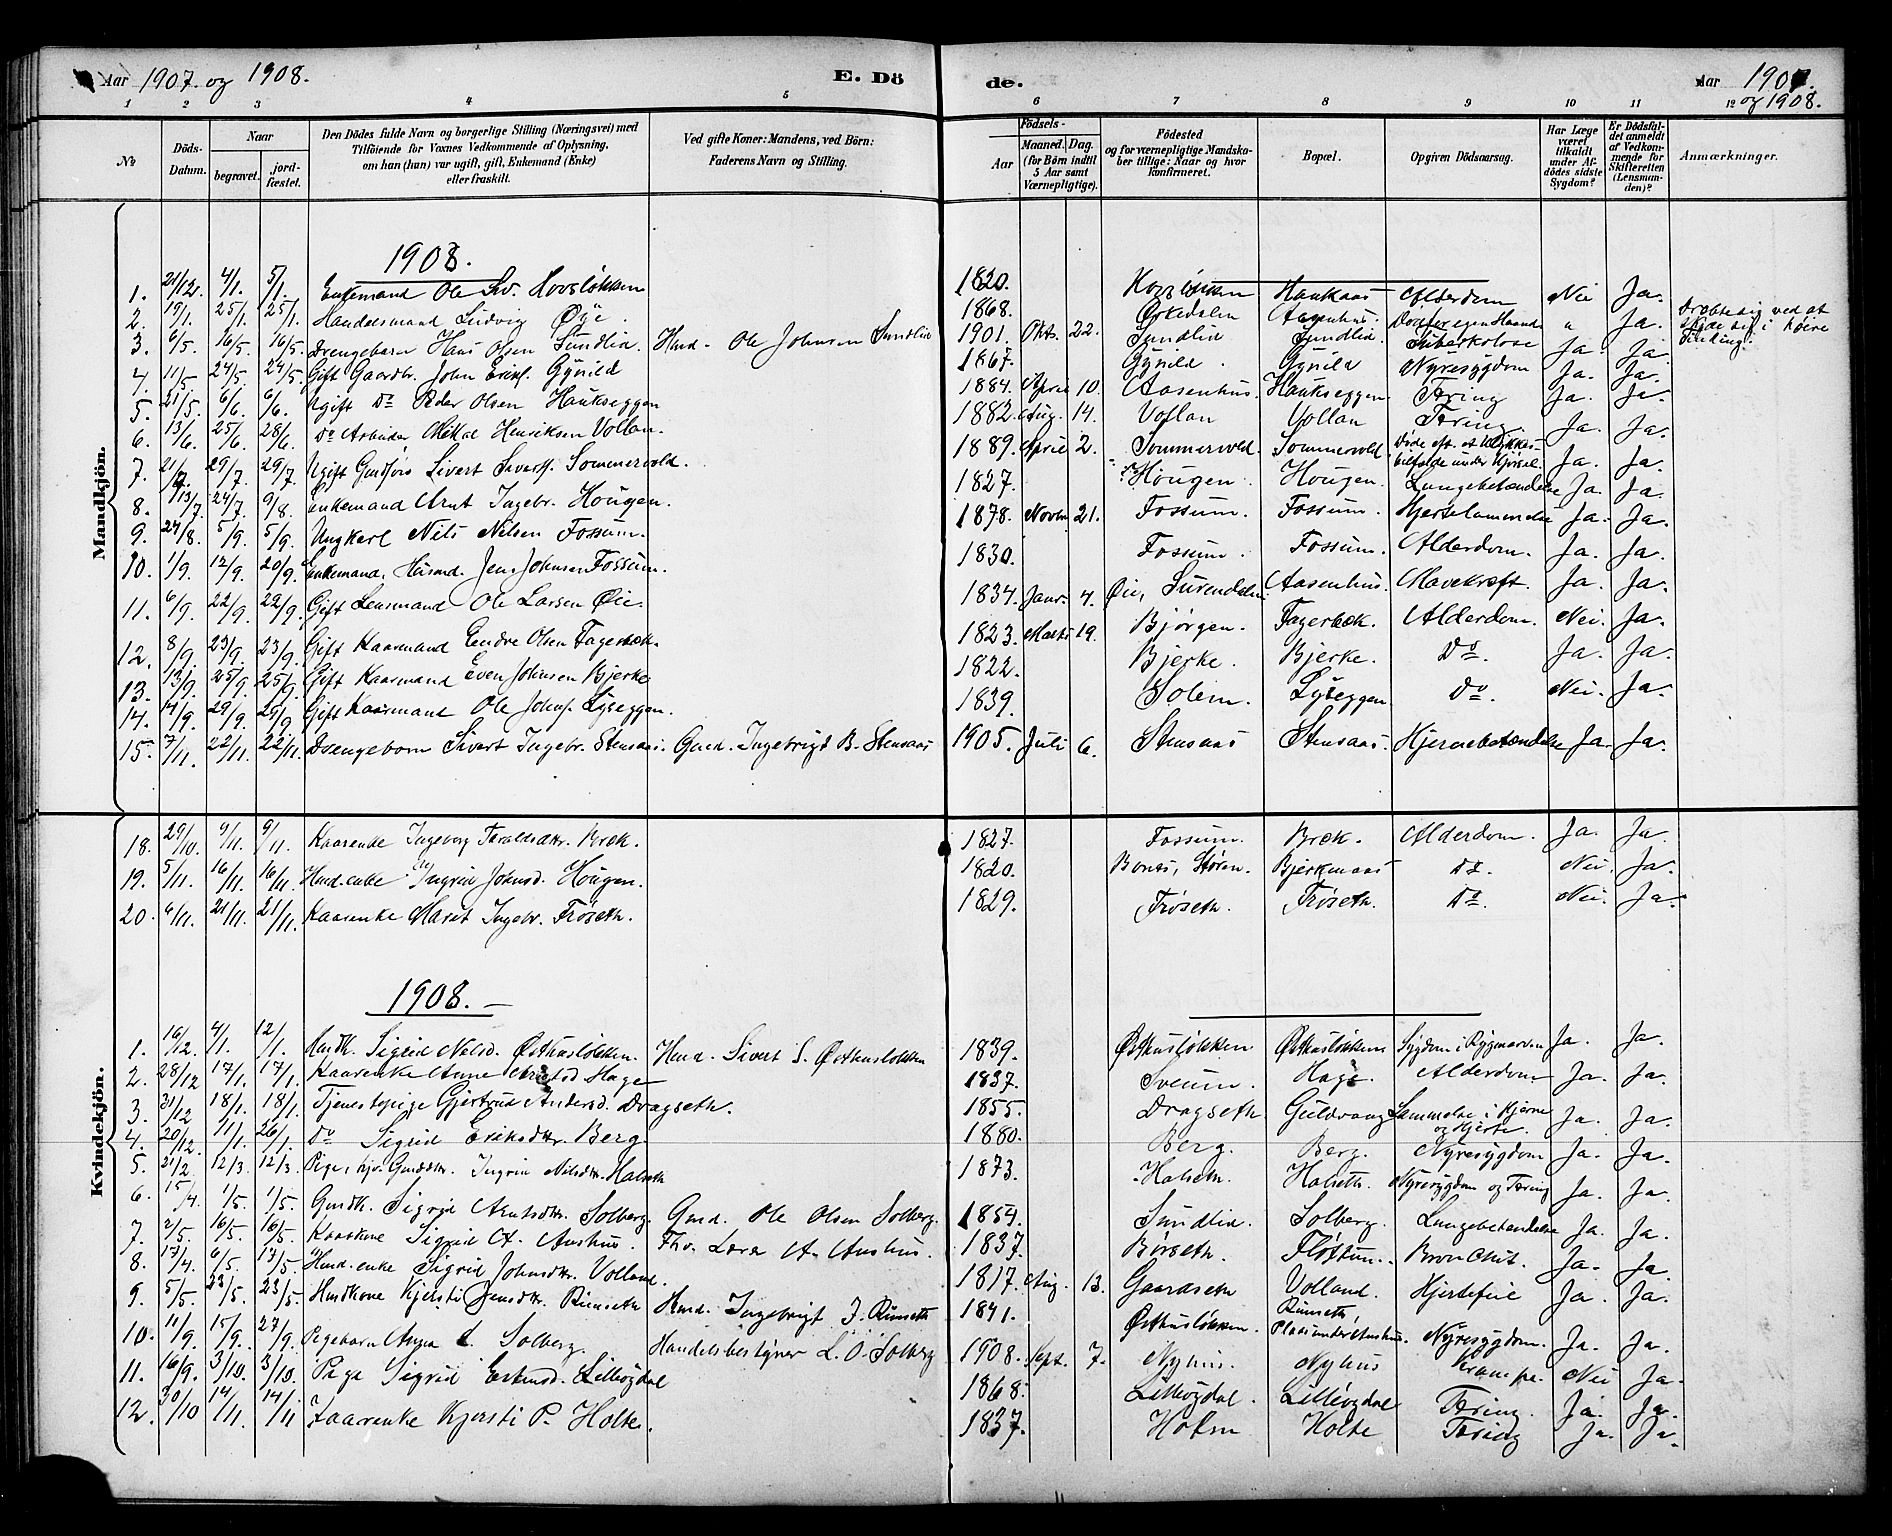 Aar 1907 og 1908. E. Dö de. Aar 1907. og 1908.
1 2 3 4 5 6 7 8 9 10 11 12
№ Döds-Datum. Naar begravet. jord-fæstet. Den Dödes fulde Navn og borgerlige Stilling (Næringsvei) med Tilföiende for Voxnes Vedkommende af Oplysning, om han (hun) var ugift, gift, Enkemand (Enke) eller fraskilt. Ved gifte Koner: Mandens, ved Börn: Faderens Navn og Stilling. Födsels- Aar Maaned. Dag. (for Börn indtil 5 Aar samt Værnepligtige). Födested og for værnepligtige Mandskaber tillige: Naar og hvor konfirmeret. Bopæl. Opgiven Dödsaarsag. Har Læge været tilkaldt under Afdödes sidste Sygdom? Er Dödsfaldet anmeldt af Vedkommende for Skifteretten (Lensmanden)? Anmærkninger.
Mandkjön.
1908.
1. 21/12 4/1. 5/1. Enkemand Ole Siv. Hovsløkken 1820. Hovsløkken Haukaas Alderdom Nei Ja.
2. 19/1. 25/1. 25/1. Handelsmand Ludvig Øye. 1868. Ørkedalen Aasenhus. Død for egen Haand " Ja. Dræbte sig ved at skyde sig i høire Tinding.
3. 6/5. 16/5. 16/5. Drengebarn Hans Olsen Sundlia. Hmd. Ole Johnsen Sundlia 1901. Okt. 22. Sundlia Sundlia. Tuberkolose Ja. Ja.
4. 11/5. 24/5. 24/5. Gift Gaardbr. John Eriks. Gynild 1867. Gynild. Gynild Nyresygdom Ja. Ja.
5. 21/5. 6/6. 6/6. Ugift Do Peder Olsen Haukseggen 1884. April 10. Aasenhus. Haukseggen Tæring Ja. Ja.
6. 13/6. 25/6. 28/6. Do Arbeider Mikal Henriksen Vollan. 1882. Aug. 14. Vollan Vollan Tæring. Ja. Ja.
7. 21/7. 29/7. 29/7. Ugift Gmdsøn Sivert Siverts. Sommervold. 1889. April 2. Sommervold. Sommervold Døde eft. et Ulykkestilfælde under Kjørsel. Ja. Ja.
8. 13/7. 24/7. 9/8. Enkemand Arnt Ingebr. Hougen. 1827. Hougen. Hougen. Lungebetændelse Ja. Ja.
9. 24/8. 5/9. 5/9. Ungkarl Nils Nilsen Fossum. 1878. Novbr. 21. Fossum. Fossum. Hjertelammelse Ja. Ja.
10. 1/9. 12/9. 20/9. Enkemand, Husmd. Jens Johnsen Fossum. 1830. Fossum. Fossum. Alderdom. Ja. Ja.
11. 6/9. 22/9. 22/9. Gift Lensmand Ole Larsen Øie. 1834. Janr. 4. Øie, Surendalen. Aasenhus. Mavekræft. Ja. Ja.
12. 8/9. 23/9. 23/9. Gift Kaarmand Endre Olsen Fagerbæk. 1823. Marts 19. Bjørgen. Fagerbæk. Alderdom. Nei. Ja.
13. 13/9. 25/9. 25/9. Gift Kaarmand Even Johnsen Bjerke 1822. Bjerke. Bjerke. Do. Ja. Ja.
14. 14/9. 29/9. 29/9. Gift Kaarmand Ole Johns. Lyseggen. 1839. Solem. Lyseggen. Do. Nei. Ja.
15. 7/11. 22/11. 22/11. Drengebarn Sivert Ingebr. Stensaas. Gmd. Ingebrigt B. Stensaas 1905. Juli 6. Stensaas Stensaas. Hjernebetændelse Ja. Ja.
Kvindekjön.
18. 29/10. 9/11. 9/11. Kaarenke Ingeborg Haraldsdtr. Bræk. 1827. Fossum. Bræk. Alderdom. Ja. Ja
19. 5/11. 16/11. 16/11. Hmd.enke Ingrid Johnsd. Hougen. 1820. Bones, Støren. Bjerkmaas Do. Nei. Ja.
20. 6/11. 21/11. 21/11. Kaarenke Marit Ingebr. Frøseth. 1829. Frøseth. Frøseth. Do. Nei. Ja.
1908.
1. 16/12. 4/1. 12/1. Hmdk. Sigrid Nilsd. Østhusløkken. Hmd. Sivert S. Østhusløkken 1839. Østhusløkken Østhusløkken Sygdom i Rygmarven Ja. Ja.
2. 28/12 17/1. 17/1. Kaarenke Anne Hage 1837. Sveum. Hage. Alderdom Ja. Ja.
3. 31/12 18/1. 18/1. Tjenestepige Gjertrud Andersd. Dragseth. 1855. Dragseth Guldvang Lammelse i Hjerne og Hjerte. Ja. Ja.
4. 20/12. 11/1. 26/1. Do Sigrid Eriksdtr. Berg. 1880. Berg. Berg. Nyresygdom Ja. Ja.
5. 21/2. 12/3. 12/3. Pige, hjv. Gmddtr. Ingrid Nilsdtr. Halseth 1873. Halseth. Halseth. Nyresygdom og Tæring Ja. Ja.
6. 15/4. 1/5. 1/5. Gmdk. Sigrid Arntsdtr. Solberg. Gmd. Ole Olsen Solberg. 1854. Sundlia. Solberg. Lungebetændelse Ja. Ja.
7. 2/5. 16/5. 16/5. Kaarkone Sigrid A. Aushus. Fhv. Lars A. Aushus. 1837. Børseth. Fløttum. Bronchit. Ja. Ja.
8. 17/4. 6/5. 17/5. Hmd.enke Sigrid Johnsdtr. Volland. 1817. Aug. 13. Gaardseth Volland. Hjertefeil Ja. Ja.
9. 5/5. 23/5. 23/5. Husdkone Kjersti Jensdtr. Rimseth Hmd. Ingebrigt J. Rimseth 1841. Østhusløkken. Rimseth, Plads under Aushus. Nyresygdom. Ja. Ja.
10. 11/9. 15/9. 27/9. Pigebarn Anna L. Solberg. Handelsbestyrer L. O. Solberg 1908. Sept. 7. Nyhus. Nyhus Krampe. Nei Ja.
11. 16/9. 3/10. 3/10. Pige Sigrid Estensd. Lilleøgdal 1868. Lilleøgdal. Lilleøgdal Tæring. Ja. Ja.
12. 30/10 14/11. 14/11 Kaarenke Kjersti P. Holte. 1837. Holem Holte Tæring Ja. Ja.